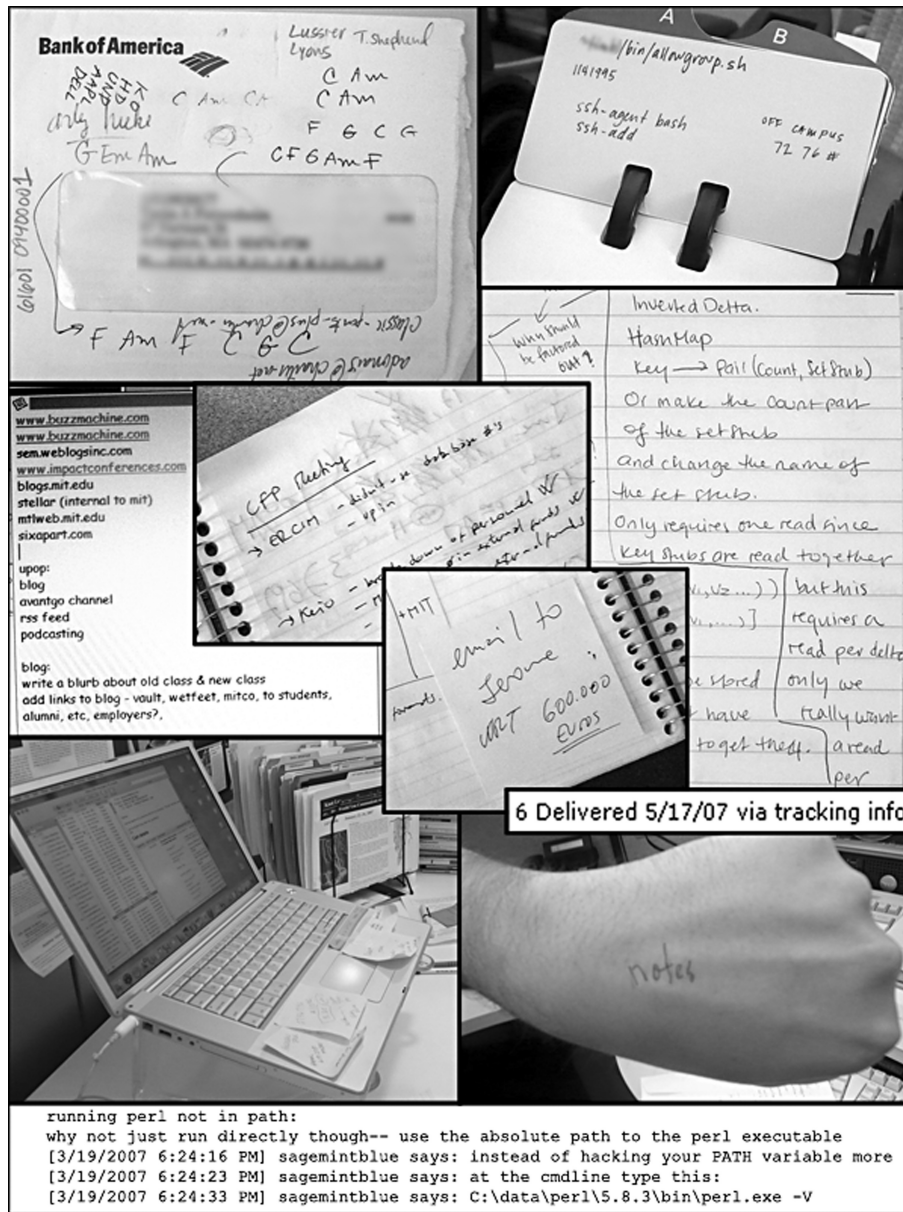 BankofAmerica
Lussier T. Shepherd
Lyons
KO
HD
UNP
AAPL
DELL
C Am
C Am CA
C Am
F G C G
G Em Am
C F G Am F
61601 09400001
F Am F C G C
classic-parts-plus@charter.net
A
B
/bin/allowgroup.sh
1141995
ssh-agent bash
ssh-add
OFF CAMPUS
72 76 #
why should
be factored
out?
Inverted Delta.
HashMap
key → Pair (count, SetStub)
Or make the count part
of the set stub
and change the name of
the set stub.
Only requires one read since
key stubs are read together
but this
requires a
read per delta
only we
really want
a read
per
stored
have
to get them.
www.buzzmachine.com
www.buzzmachine.com
sem.weblogsinc.com
www.impactconferences.com
blogs.mit.edu
stellar (internal to mit)
mtlweb.mit.edu
sixapart.com
upop:
blog
avantgo channel
rss feed
podcasting
blog:
write a blurb about old class & new class
add links to blog - vault, wetfeet, mitco, to students,
alumni, etc, employers?,
CFP Meeting
→ ERCIM - didn't use database #'s
→ Keio - down of personnel
external funds
+MIT
email to
Jerome :
600.000
EUROS
6 Delivered 5/17/07 via tracking info
notes
running perl not in path:
why not just run directly though-- use the absolute path to the perl executable
[3/19/2007 6:24:16 PM] sagemintblue says: instead of hacking your PATH variable more
[3/19/2007 6:24:23 PM] sagemintblue says: at the cmdline type this:
[3/19/2007 6:24:33 PM] sagemintblue says: C:\data\perl\5.8.3\bin\perl.exe -V